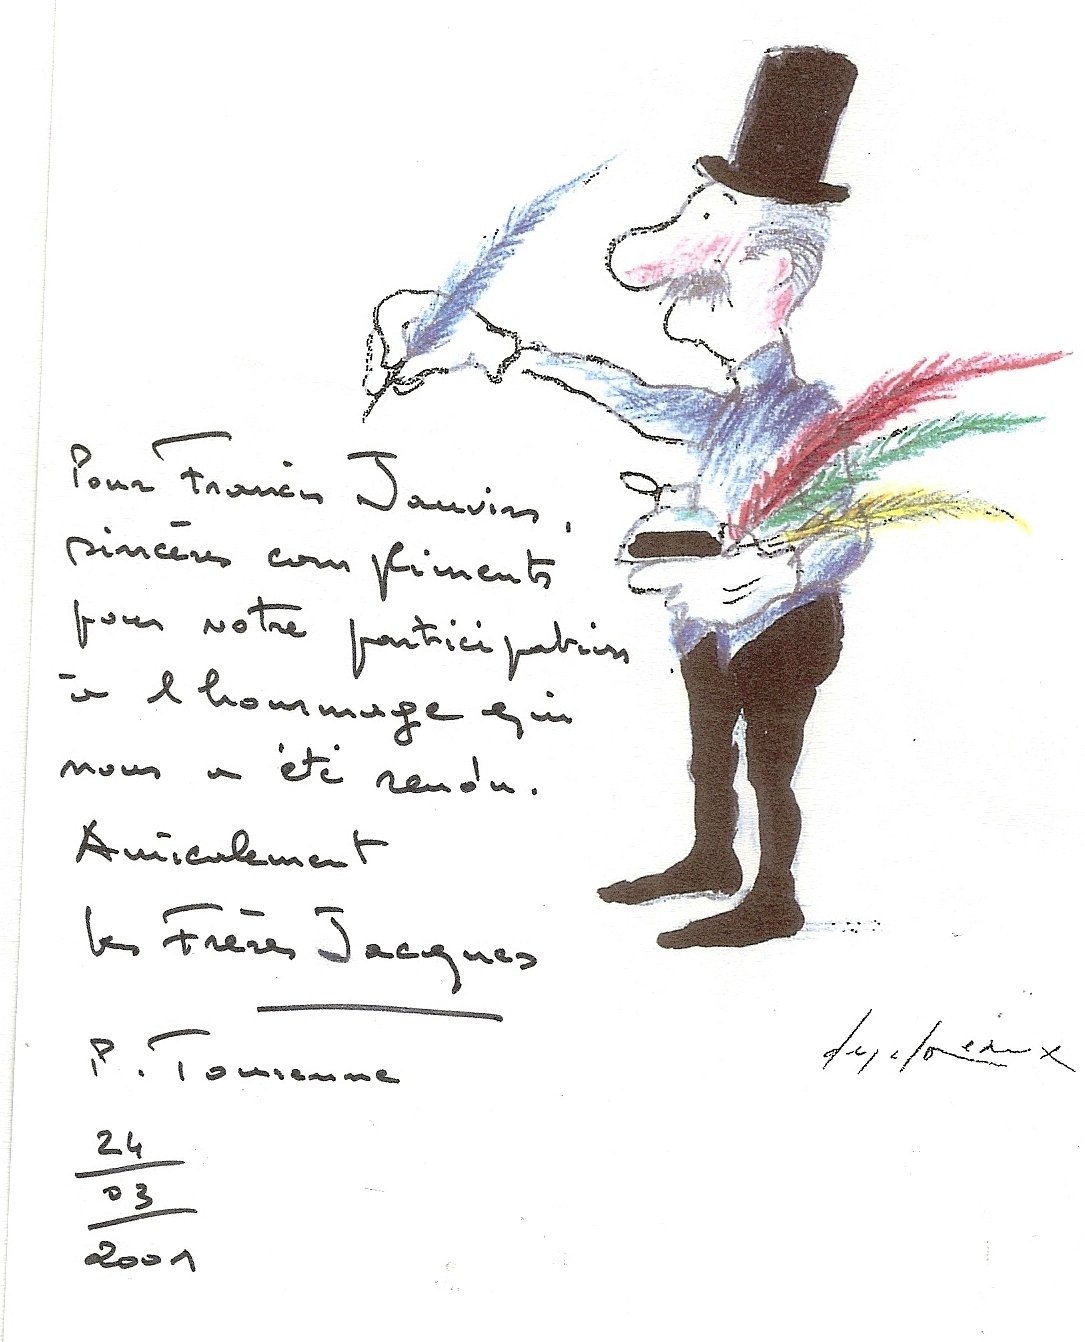 Pour Francis Janvier,
sincères compliments
pour votre participation
à l'hommage qui
nous a été rendu.
Amicalement
les Frères Jacques
P. Tourenne
24
03
2001
desclozeaux